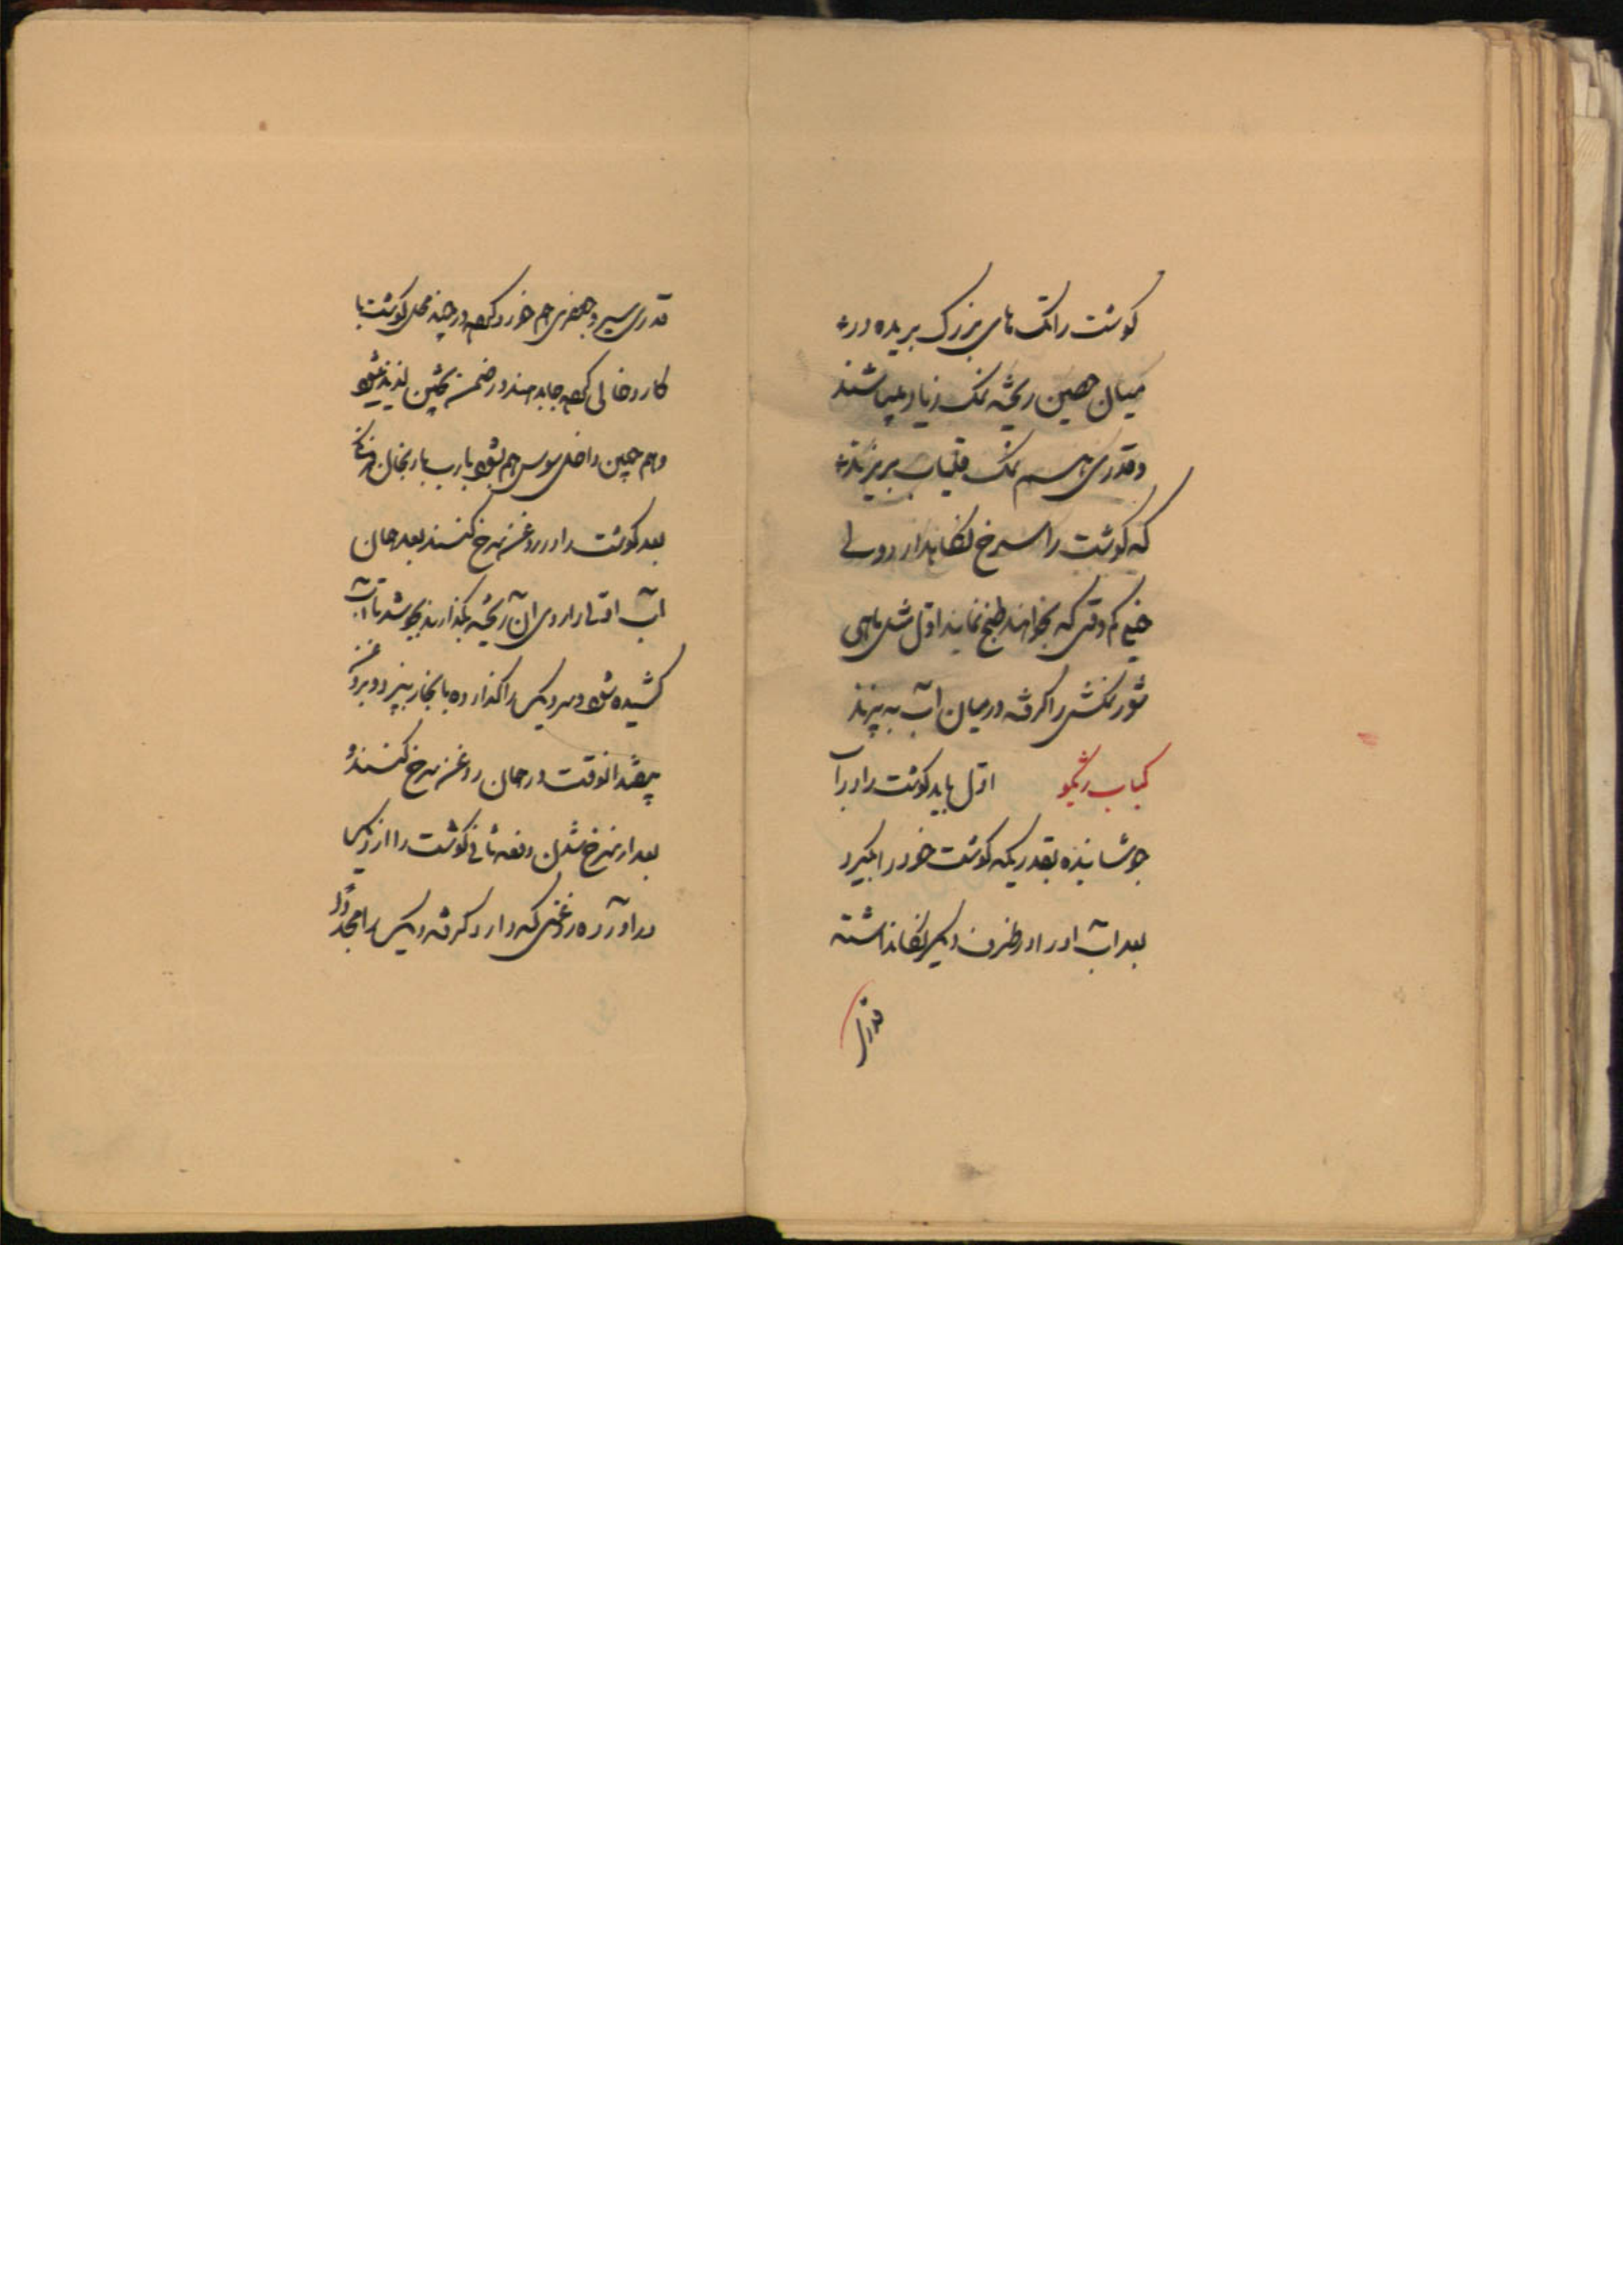 گوشت را تکه های بزرگ بریده در
میان حصین ریخته نمک زیاد بپاشند
و قدری هم نمک قلیاب بریزند
که گوشت را سرخ نگاهدارد ولی
خیلی کم وقتی که بخواهند طبخ نمایند اول مثل ماهی
شور نمکش را گرفته در میان آب به پزند
کباب اول باید گوشت را در آب
جوشانیده بقدریکه گوشت خود را بگیرد
بعد آب او را در ظرف دیگر نگاهداشته
قدری
قدری سیر و جعفری هم خورد کرده در چند محل گوشت با
کارد خالی کرده جا بدهند در ضمن پختن لذیذ میشود
و هم چنین داخلی سوس هم بشود یا رب یا بادنجان فرنگی
بعد گوشت را در روغن سرخ کنند بعد همان
آب اولی را روی آن ریخته بگذارند بجوشد تا آب
کشیده شود و سر دیگ را گذارده با بخار بپزد و بروغن
بیفتد آنوقت در همان روغن سرخ کنند و
بعد از سرخ شدن دفعه ثانی گوشت را از دیگ
در آورده روغنی که دارد گرفته دیگ را مجدداً